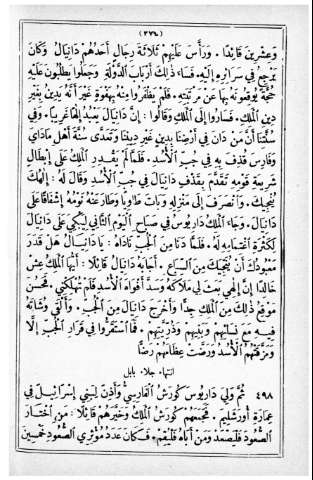 (٣٧٦)
وعشرين قائدًا. ورأّس عليهم ثلاثة رجال أحدهم دانيال وكان
يرجع في سرائره إليه. فساء ذلك أرباب الدولة وجعلوا يطلبون عليه
حجّة يوقعونه بها عن مرتبته. فلم يظفروا منه بهفوة غير أنّه يدين بغير
دين الملك. فساروا إلى الملك وقالوا: إنّ دانيال يعبد إلهًا غريبًا. وفي
سنّتنا أنّ من دان في أرضنا بدين غير ديننا وتعدّى سنّة أهل ماداي
وفارس قذف به في جبّ الأسد. فلمّا لم يقدر الملك على إبطال
شريعة قومه تقدّم بقذف دانيال في جبّ الأسد وقال له: إلهك
ينجيك. وانصرف إلى منزله وبات طاويًا وطار عنه نومه إشفاقًا على
دانيال. وجاء الملك داريوس في صباح اليوم الثاني ليبكي على دانيال
لكثرة اعتمامه له. فلمّا دنا من الجبّ ناداه: يا دانيال هل قدر
معبودك أن ينجيك من السباع. أجابه دانيال قائلًا: أيّها الملك عش
خالدًا إنّ إلهي بعث لي ملاكه وسدّ أفواه الأسد فلم تهلكني. فحسن
موقع ذلك من الملك جدًّا وأخرج دانيال من الجبّ. وألقى وشاته
فيه مع نسائهم وبنيهم وذرّيتهم. فما استقرّوا في قرار الجبّ إلّا
ومزّقتهم الأسد ورضّت عظامهم رضًّا
انتهاء جلاء بابل
٤٩٨ ثمّ ولي داريوس كورش الفارسي وأذن لبني إسرائيل في
عمارة أورشليم. فجمعهم كورش الملك وخيّرهم قائلًا: من اختار
الصعود فليصعد ومن أباه فليقم. فكان عدد مؤثري الصعود خمسين